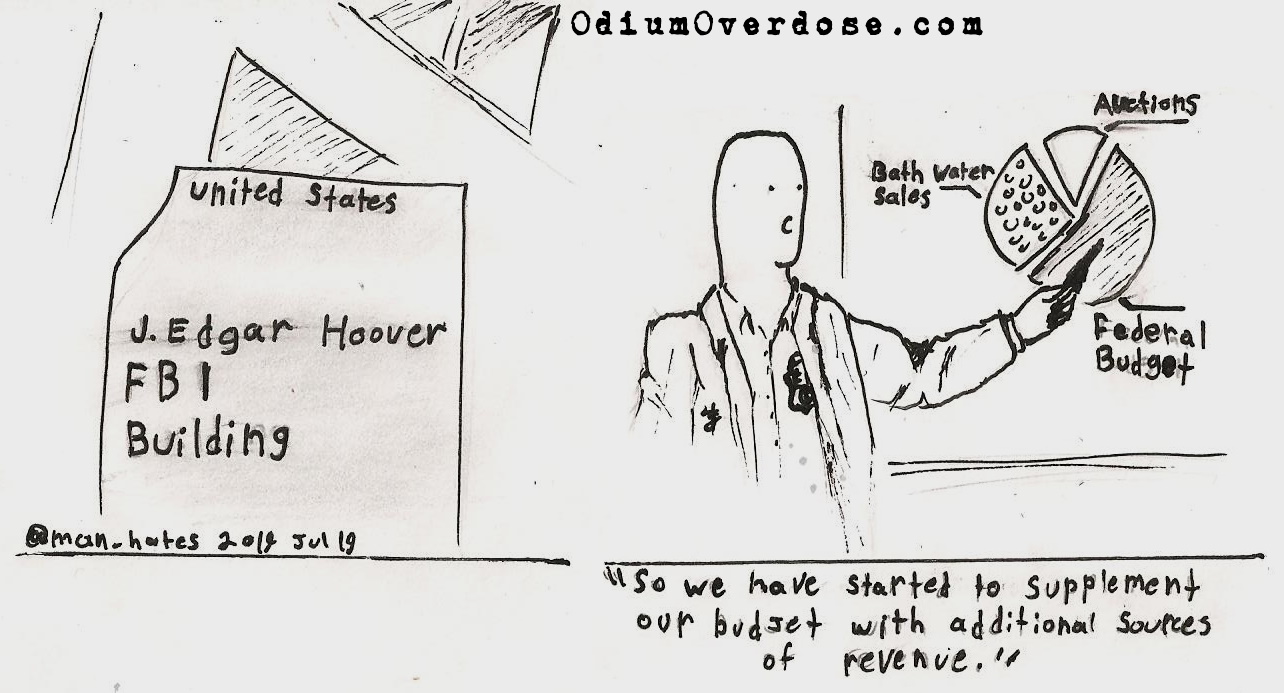 OdiumOverdose.com
United States
J. Edgar Hoover
FBI
Building
@man_hates 2019 Jul 19
Auctions
Bath Water
Sales
Federal
Budget
"So we have started to supplement
our budget with additional sources
of revenue."